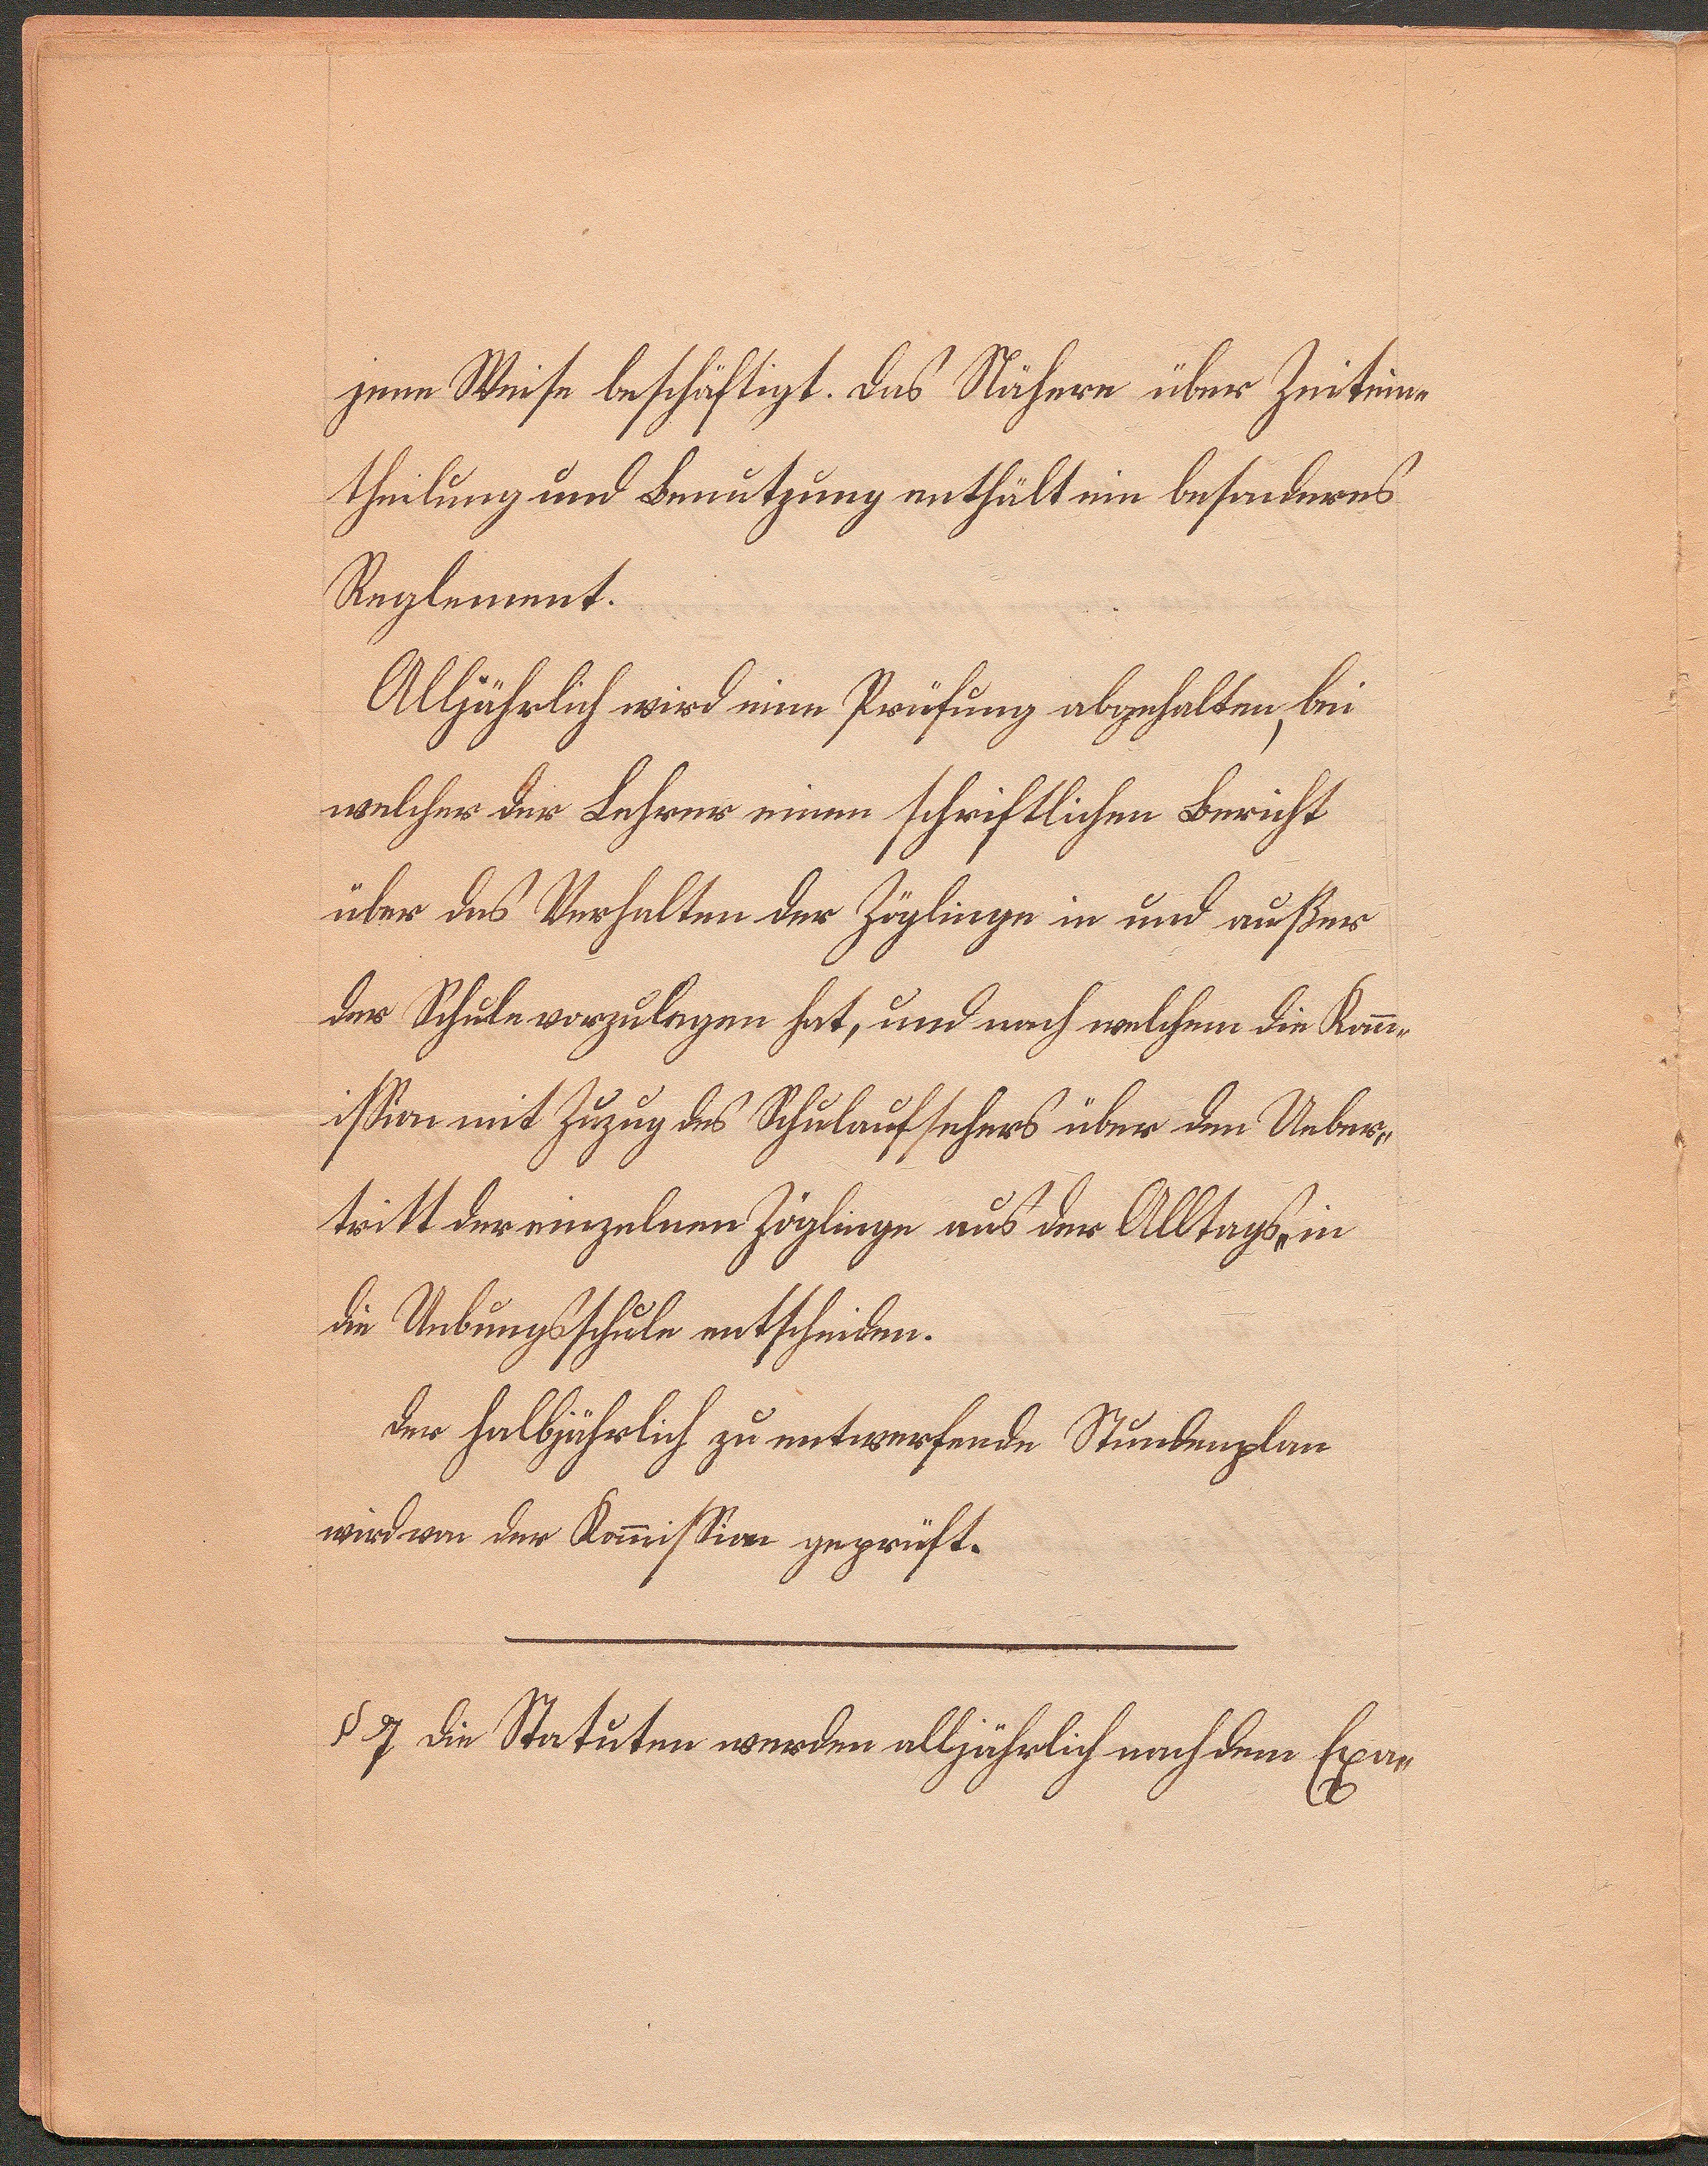 jene Weise beschäftigt. Das Nähere über Zeitein-
theilung und Benutzung enthält ein besonderes
Reglement.
Alljährlich wird eine Prüfung abgehalten, bei
welcher der Lehrer einen schriftlichen Bericht
über das Verhalten der Zöglinge in und außer
der Schule vorzulegen hat, und nach welchem die Kom̅-
ission mit Zuzug des Schulaufsehers über den Ueber-
tritt der einzelnen Zöglinge aus der Alltags- in
die Uebungsschule entscheiden.
Der halbjährlich zu entwerfende Stundenplan
wird von der Kom̅ission geprüft.
§ 7 Die Statuten werden alljährlich nach dem Exa-